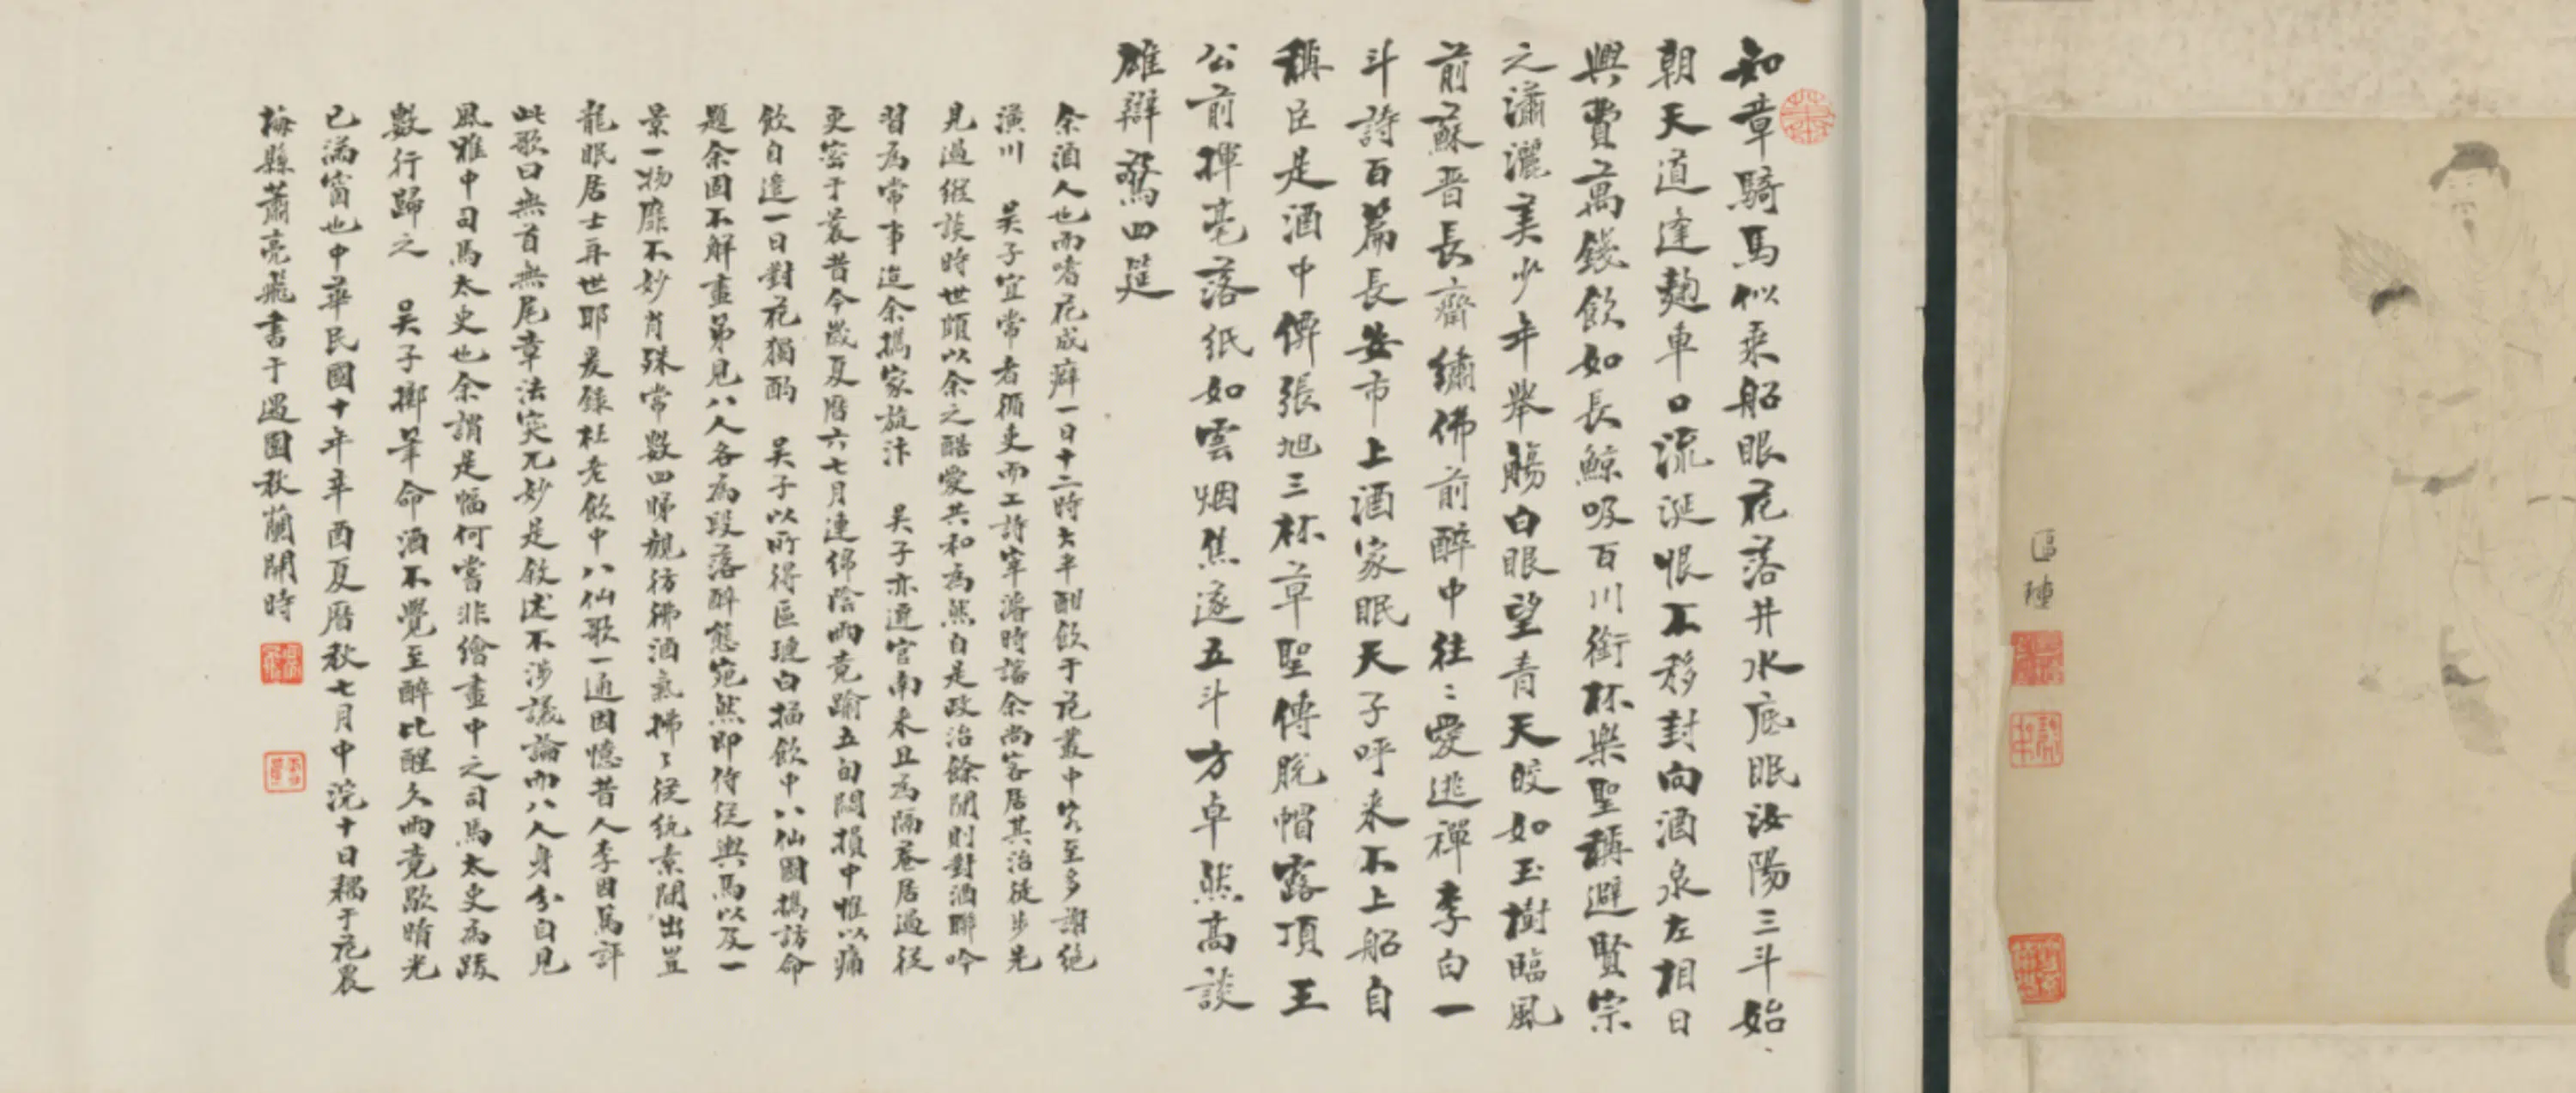 區璉
知章騎馬似乘船眼花落井水底眠汝陽三斗始
朝天道逢麴車口流涎恨不移封向酒泉左相日
興費萬錢飲如長鯨吸百川銜杯樂聖稱避賢宗
之瀟灑美少年舉觴白眼望青天皎如玉樹臨風
前蘇晋長齋繡佛前醉中往〻愛逃禪李白一
斗詩百篇長安市上酒家眠天子呼来不上船自
稱臣是酒中僊張旭三杯草聖傳脫帽露頂王
公前揮毫落紙如雲烟焦遂五斗方卓然高談
雄辯驚四筵
余酒人也而嗜花成癖一日十二時大半酣飲于花叢中客至多謝絕
濱川 吳子宜常者循吏而工詩宰潯時譆余尚客居其治徒步先
見過縱談時世頗以余之酷愛共和為然自是政治餘閒則對酒聯吟
習為常事迨余攜家旋汴 吳子亦連官南来且為隔巷居過從
更密于曩昔今歲夏曆六七月連綿陰雨竟踰五旬悶損中惟以痛
飲自遣一日對花獨酌 吳子以所得區璉白描飲中八仙圖攜訪命
題余固不解畫第見八人各為段落醉態宛然即侍從與馬以及一
景一物靡不妙肖殊常數四睇觀彷彿酒氣拂〻從紈素間出豈
龍眠居士再世耶爰錄杜老飲中八仙歌一通因憶昔人李因篤評
此歌曰無首無尾章法突兀妙是敘述不涉議論而八人身分自見
風雅中司馬太史也余謂是幅何嘗非繪畫中之司馬太史為跋
數行歸之 吳子擲筆命酒不覺至醉比醒久雨竟歇晴光
已滿窗也中華民國十年辛酉夏曆秋七月中浣十日稿于花農
梅縣蕭亮飛書于過園秋蘭開時